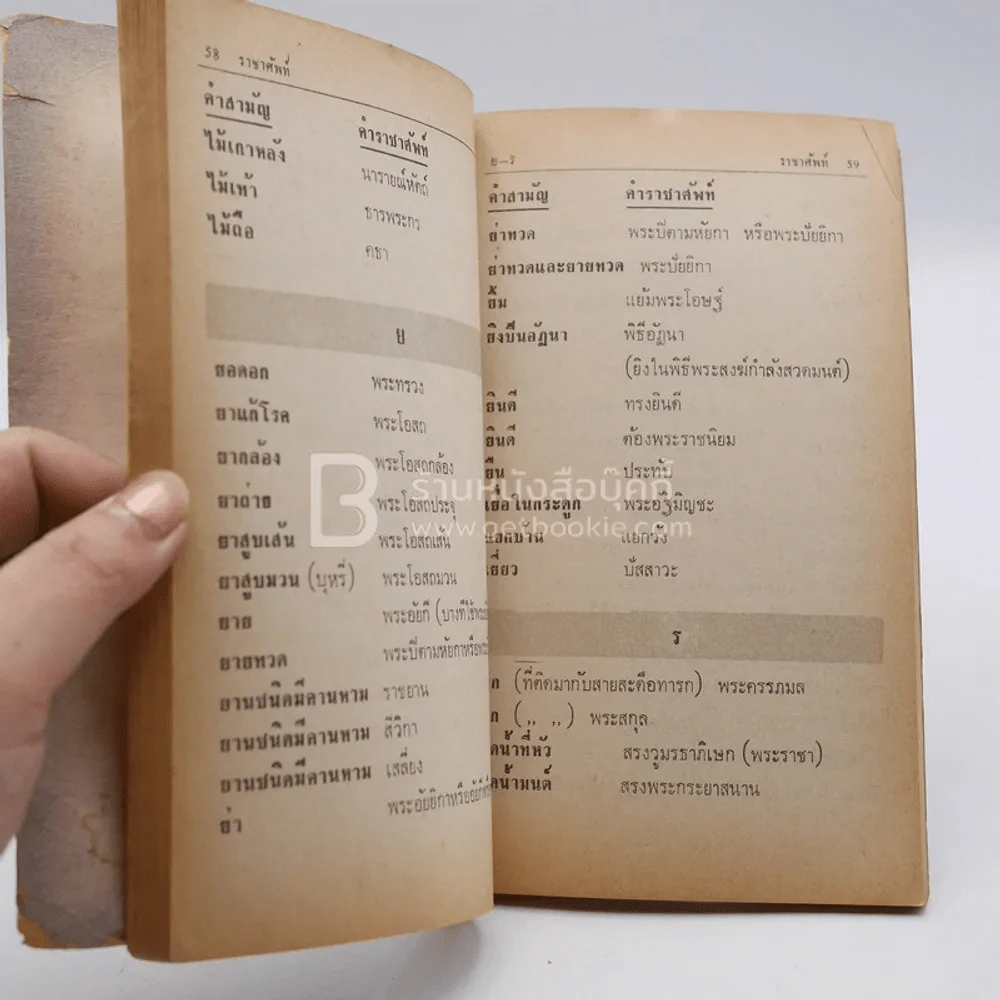 58 ราชาศัพท์
คำสามัญ คำราชาศัพท์
ไม้เกาหลัง นารายณ์หัตถ์
ไม้เท้า ธารพระกร
ไม้ถือ คธา
ย
ยอดอก พระทรวง
ยาแก้โรค พระโอสถ
ยากล้อง พระโอสถกล้อง
ยาถ่าย พระโอสถประจุ
ยาสูบเส้น พระโอสถเส้น
ยาสูบมวน (บุหรี่) พระโอสถมวน
ยาย พระอัยกี (บางทีใช้
ยายทวด พระปี่ตามหัยกาหรือ
ยานชนิดมีคานหาม ราชยาน
ยานชนิดมีคานหาม สีวิกา
ยานชนิดมีคานหาม เสลี่ยง
ย่า พระอัยยิกาหรืออัยกี
ย—ร ราชาศัพท์ 59
คำสามัญ คำราชาศัพท์
ย่าทวด พระปี่ตามหัยกา หรือพระปัยยิกา
ย่าทวดและยายทวด พระปัยยิกา
ยิ้ม แย้มพระโอษฐ์
ยิงปืนอัฏนา พิธีอัฏนา
(ยิงในพิธีพระสงฆ์กำลังสวดมนต์)
ยินดี ทรงยินดี
ยินดี ต้องพระราชนิยม
ยืน ประทับ
เยื่อในกระดูก พระอัฐิมิญชะ
แยกบ้าน แยกวัง
เยี่ยว ปัสสาวะ
ร
ก (ที่ติดมากับสายสะดือทารก) พระครรภมล
ก („ „) พระสกุล
ดน้ำที่หัว สรงวูมรธาภิเษก (พระราชา)
ดน้ำมนต์ สรงพระกระยาสนาน
B ร้านหนังสือบุ๊คกี้
www.getbookie.com